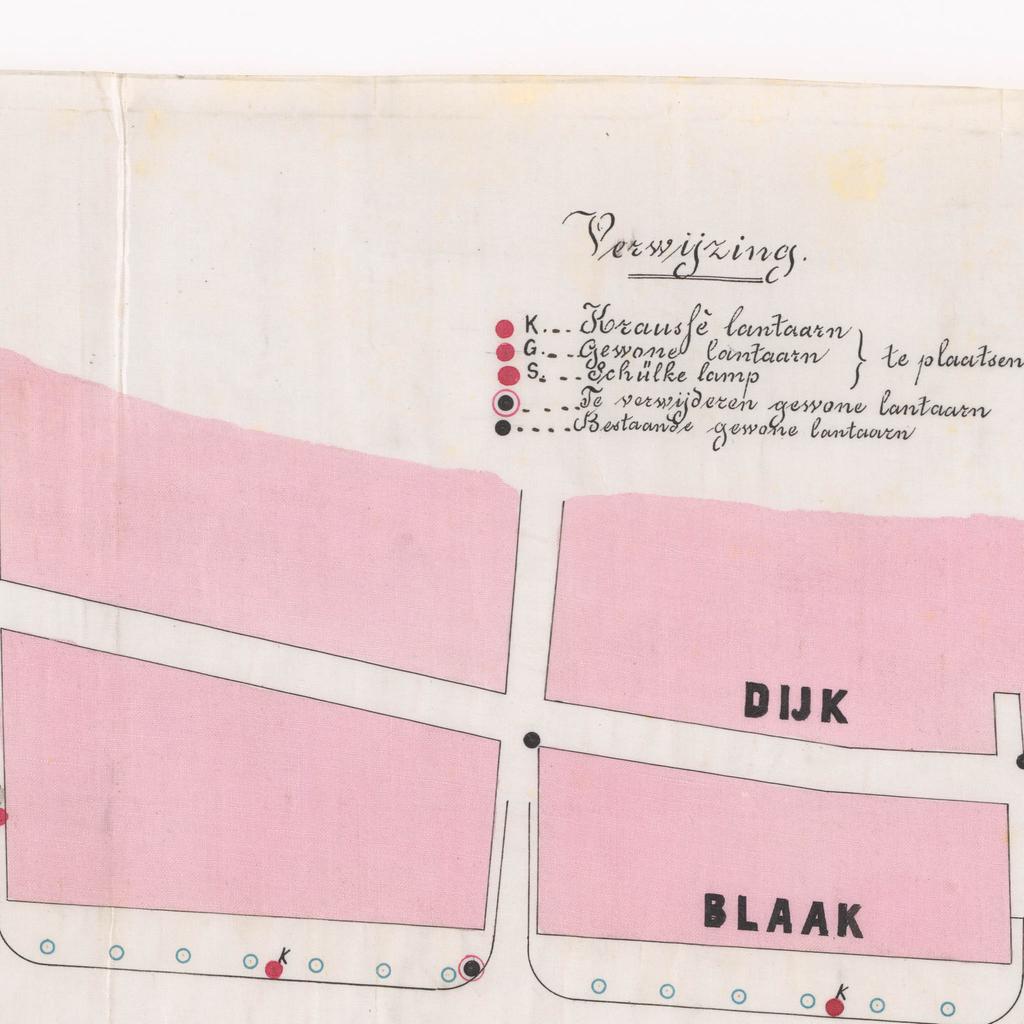 Verwijzing.
K... Kraussè lantaarn
G... Gewone lantaarn } te plaatsen
S.... Schülke lamp
.....Te verwijderen gewone lantaarn
.....Bestaande gewone lantaarn
DIJK
BLAAK
K
K